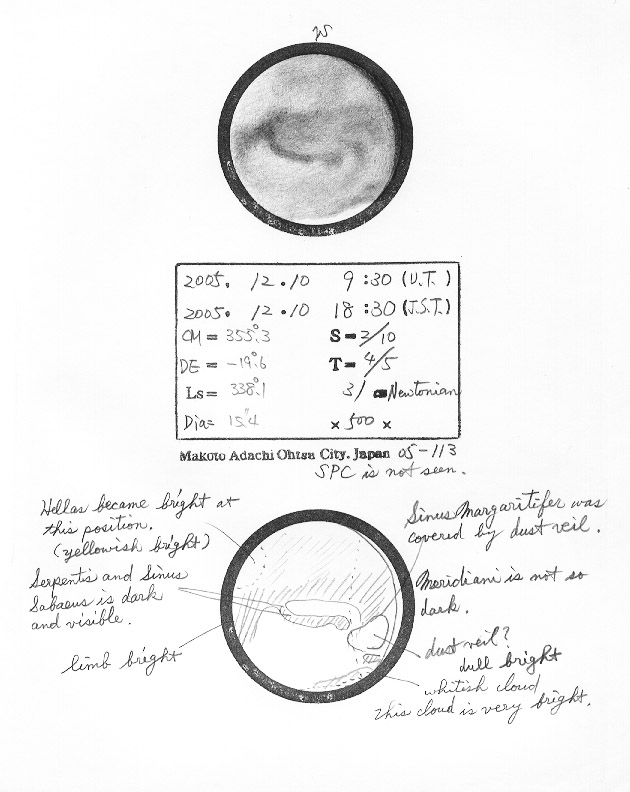 2005. 12.10 9:30 (U.T.)
2005. 12.10 18:30 (J.S.T.)
CM = 355°.3 S=2/10
DE = -19°.6 T=4/5
Ls= 338°.1 31 cm Newtonian
Dia= 15".4 × 500 ×
Makoto Adachi Ohtsu City. Japan 05-113
SPC is not seen.
Hellas became bright at
this position.
(yellowish bright)
Serpentis and Sinus
Sabaeus is dark
and visible.
limb bright
Sinus Margaritifer was
covered by dust veil.
Meridiani is not so
dark.
dust veil?
dull bright
whitish cloud
This cloud is very bright.